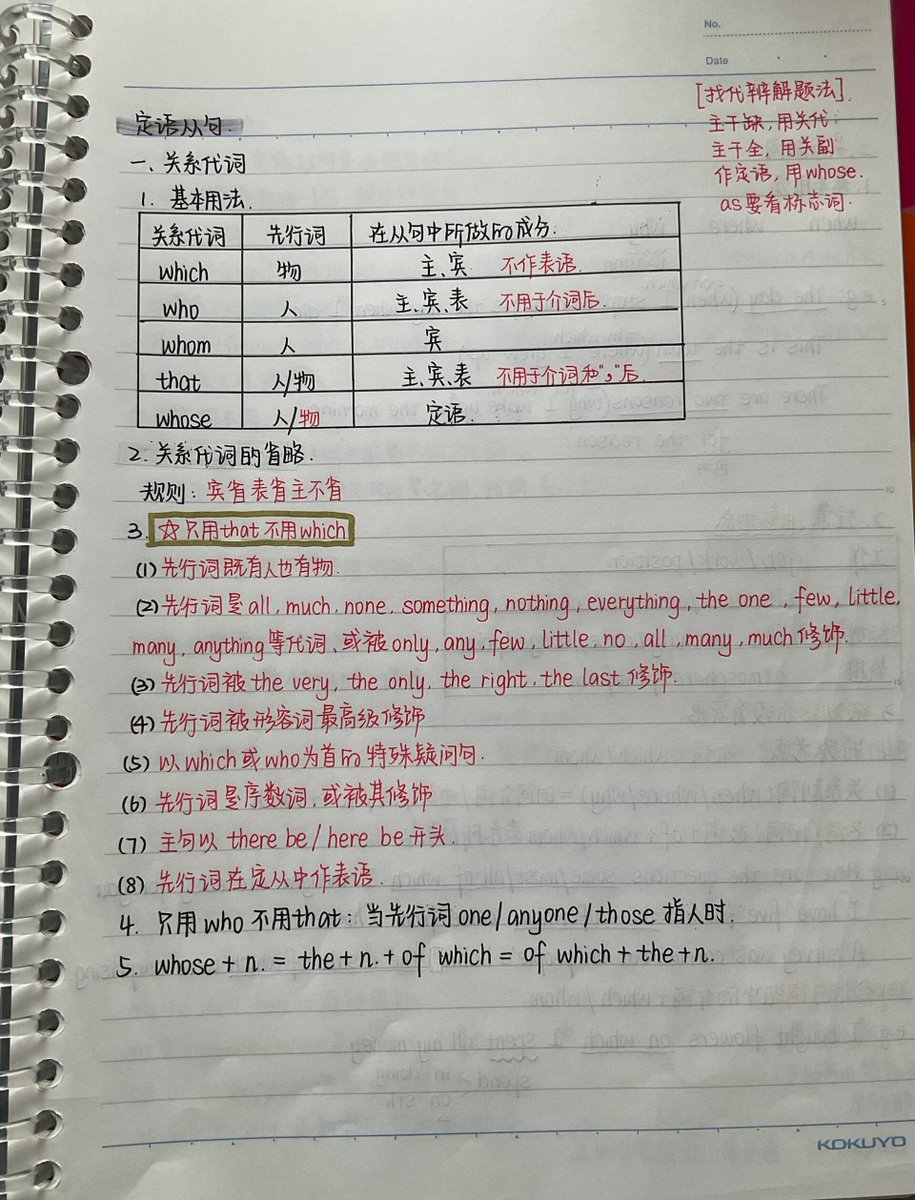 No.
Date
[找代辨解题法].
主干缺,用关代
主干全,用关副
作定语,用whose.
as要看标志词.
定语从句.
一、关系代词
1. 基本用法.
关系代词 先行词 在从句中所做的成分.
which 物 主、宾 不作表语.
who 人 主、宾、表 不用于介词后.
whom 人 宾
that 人/物 主、宾、表 不用于介词和","后.
whose 人/物 定语.
2. 关系代词的省略.
规则: 宾省表省主不省
3. ☆只用that不用which
(1) 先行词既有人也有物.
(2) 先行词是all, much, none, something, nothing, everything, the one, few, little,
many, anything等代词、或被only, any, few, little, no, all, many, much修饰.
(3) 先行词被the very, the only, the right, the last 修饰.
(4) 先行词被形容词最高级修饰
(5) 以which或who为首的特殊疑问句.
(6) 先行词是序数词,或被其修饰
(7) 主句以 there be/here be开头.
(8) 先行词在定从中作表语.
4. 只用who不用that: 当先行词one/anyone/those 指人时.
5. whose + n. = the + n. + of which = of which + the + n.
KOKUYO